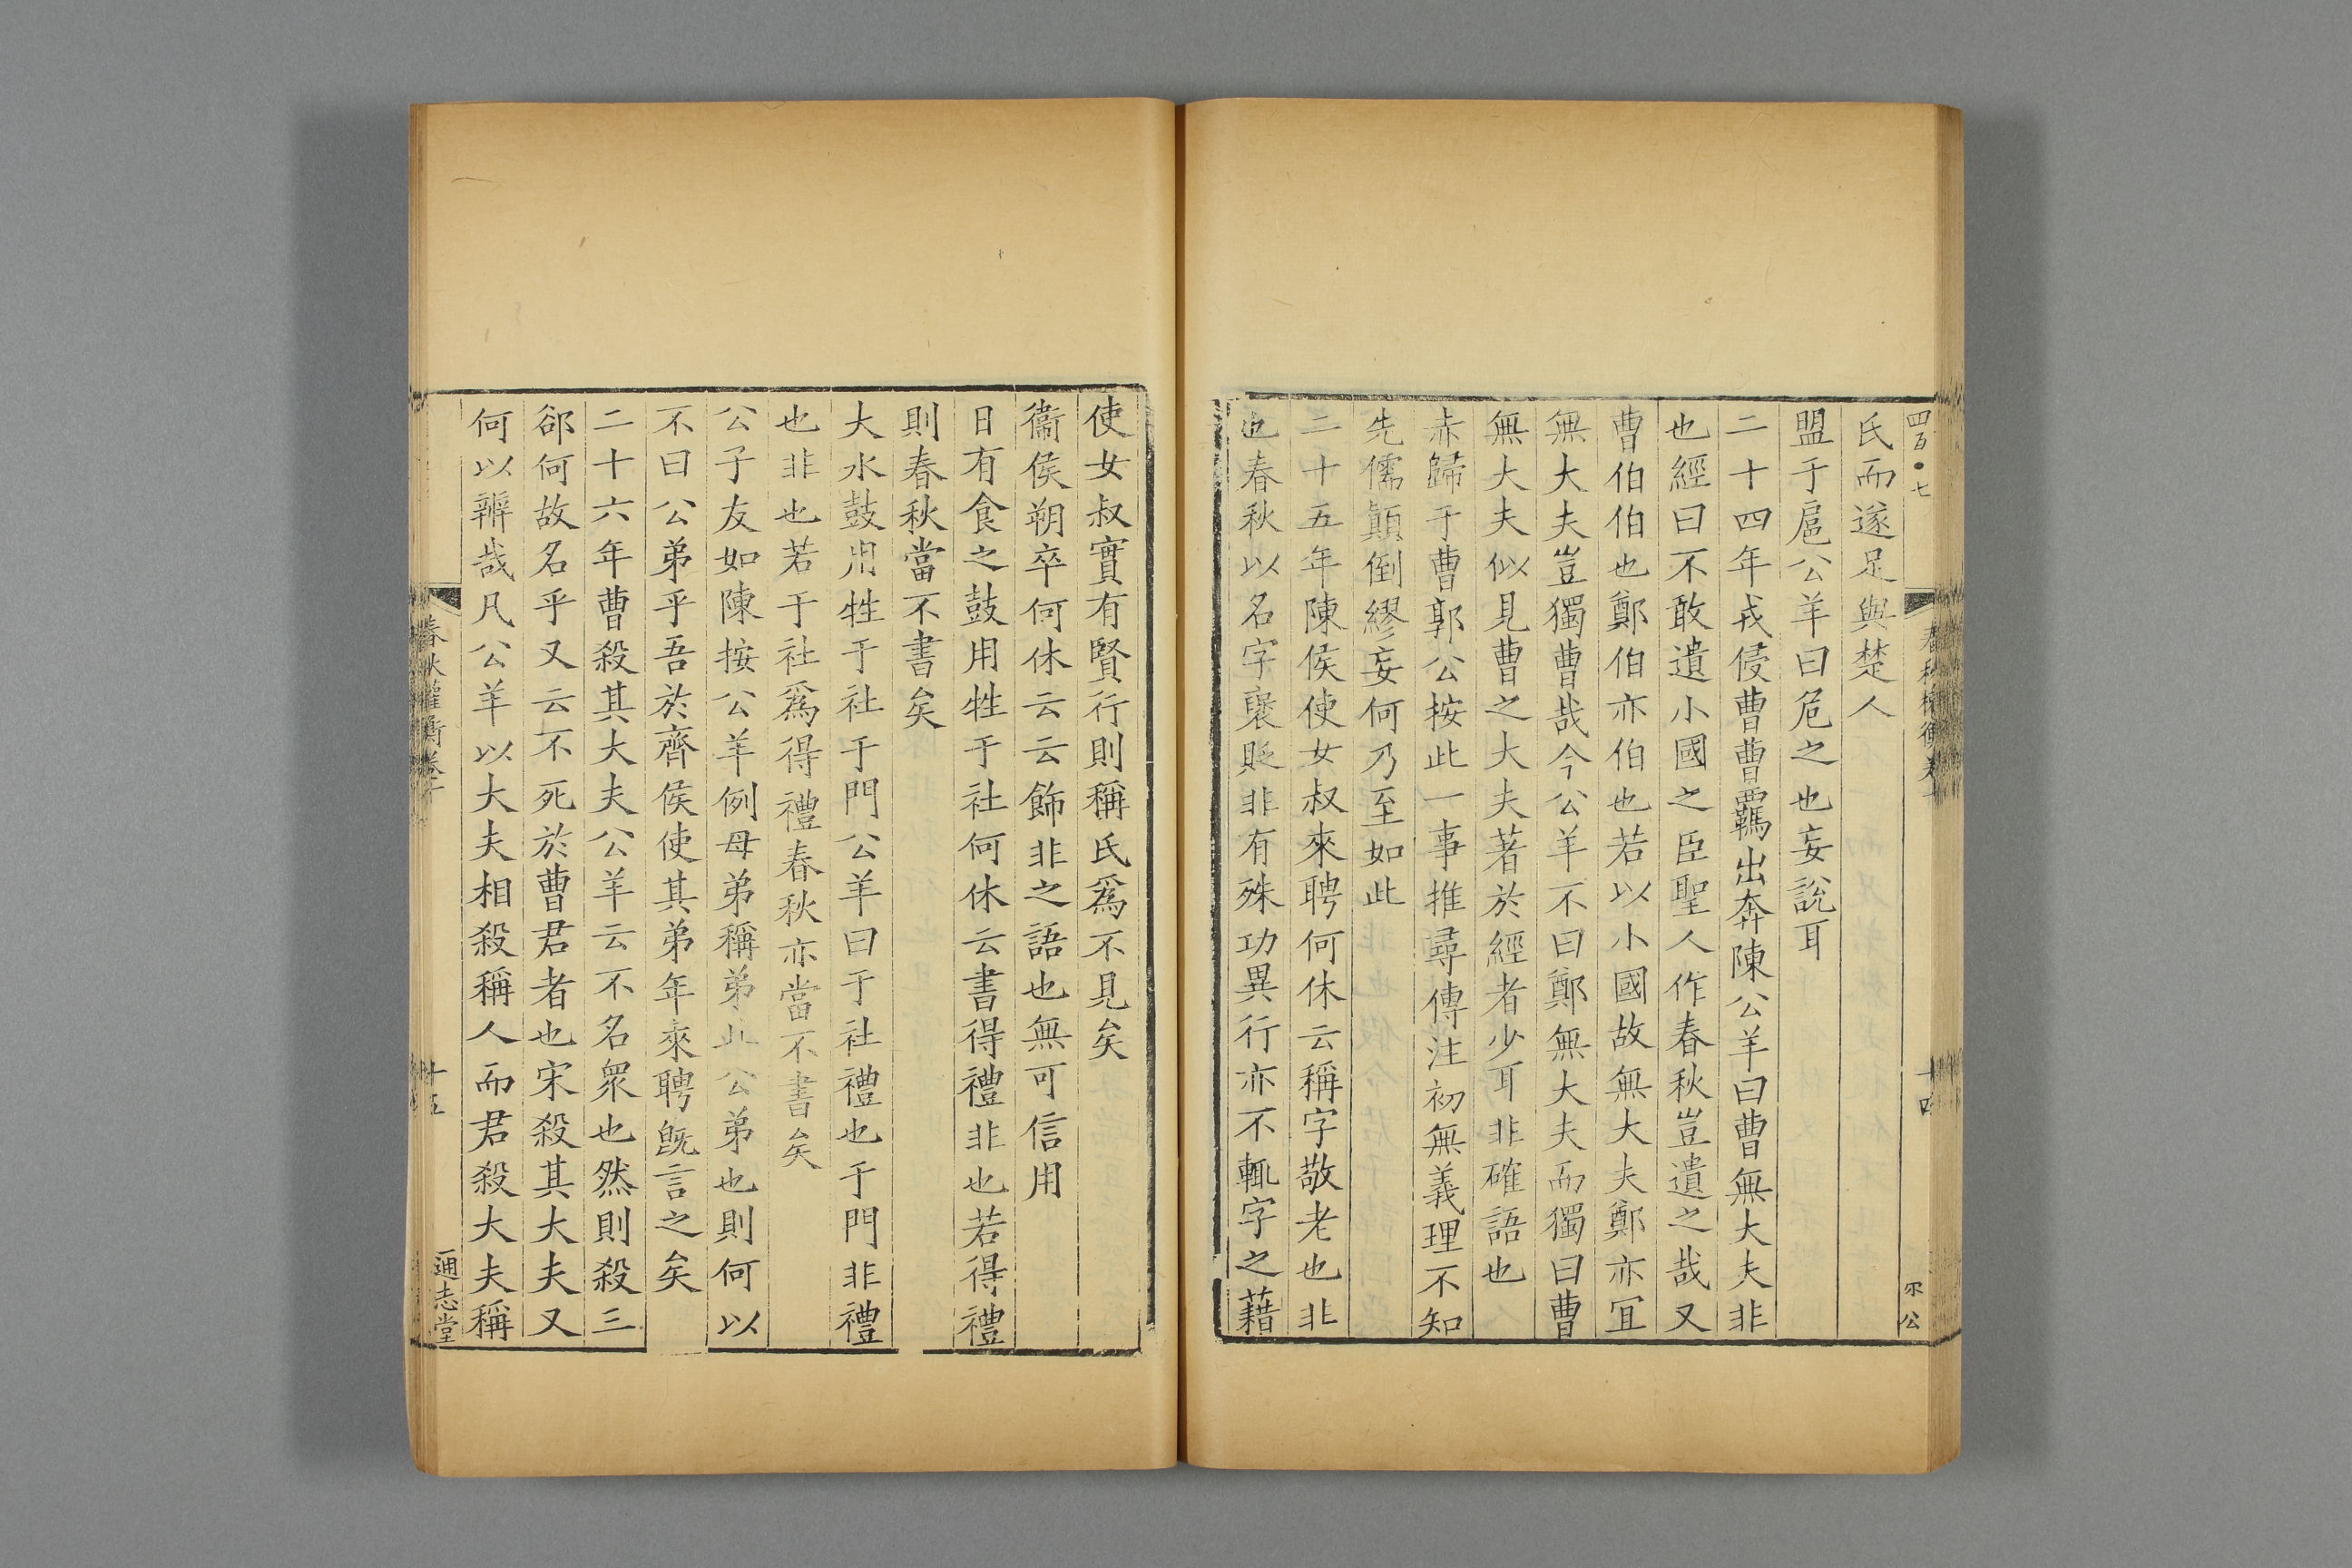 四百•七
氏而遂足與楚人
盟于扈公羊曰危之也妄說耳
二十四年戎侵曹曹羈出奔陳公羊曰曹無大夫非
也經曰不敢遺小國之臣聖人作春秋豈遺之哉又
曹伯伯也鄭伯亦伯也若以小國故無大夫鄭亦冝
無大夫豈獨曹哉今公羊不曰鄭無大夫而獨曰曹
無大夫似見曹之大夫著於經者少耳非確語也
赤歸于曹郭公按此一事推尋傳注初無義理不知
先儒顛倒繆妄何乃至如此
二十五年陳侯使女叔來聘何休云稱字敬老也非
也春秋以名字襃貶非有殊功異行亦不輒字之藉
使女叔實有賢行則稱氏爲不見矣
衞侯朔卒何休云云飾非之語也無可信用
日有食之鼓用牲于社何休云書得禮非也若得禮
則春秋當不書矣
大水鼓用牲于社于門公羊曰于社禮也于門非禮
也非也若于社爲得禮春秋亦當不書矣
公子友如陳按公羊例母弟稱弟此公弟也則何以
不曰公弟乎吾於齊侯使其弟年來聘旣言之矣
二十六年曹殺其大夫公羊云不名衆也然則殺三
郤何故名乎又云不死於曹君者也宋殺其大夫又
何以辨哉凡公羊以大夫相殺稱人而君殺大夫稱
春秋權衡卷十
十五
通志堂